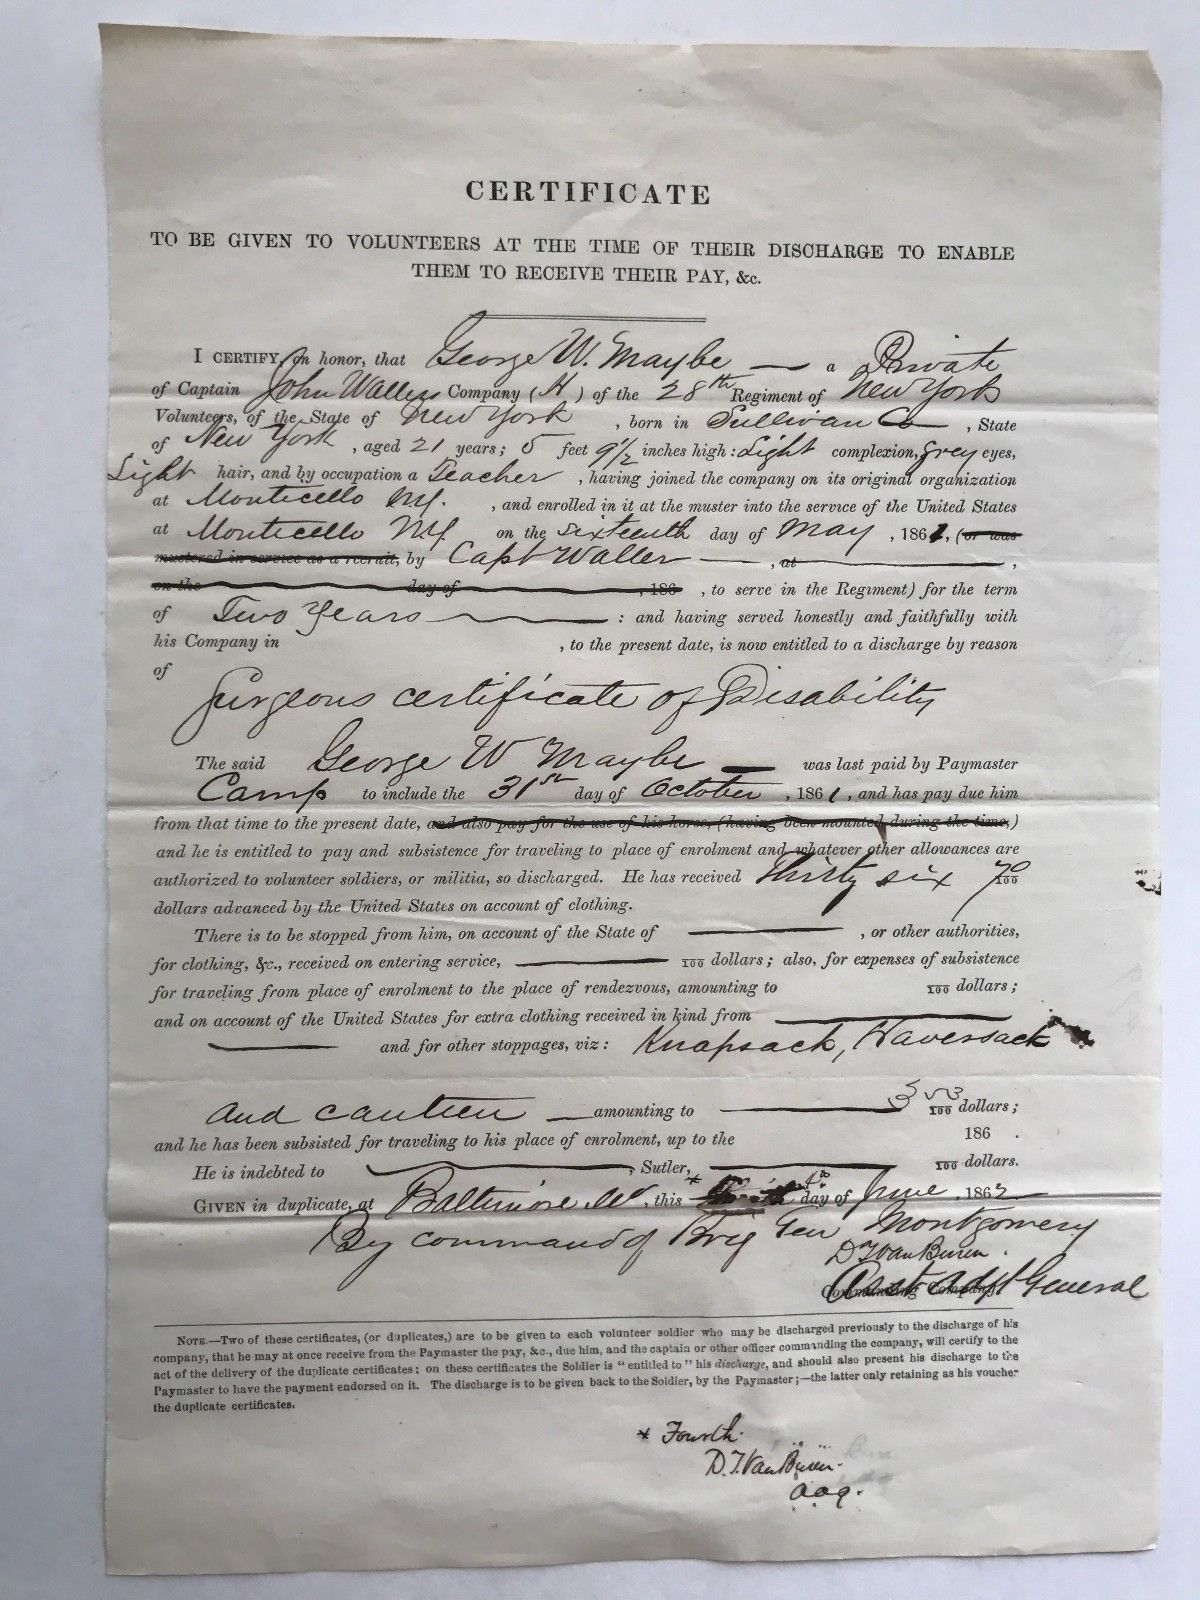 CERTIFICATE
TO BE GIVEN TO VOLUNTEERS AT THE TIME OF THEIR DISCHARGE TO ENABLE
THEM TO RECEIVE THEIR PAY, &c.
I CERTIFY, on honor, that George W. Maybe — a Private
of Captain John Wallers Company (H) of the 28th Regiment of New York
Volunteers, of the State of New York, born in Sullivan Co —, State
of New York, aged 21 years; 5 feet 9½ inches high: Light complexion, grey eyes,
Light hair, and by occupation a Teacher, having joined the company on its original organization
at Monticello NY., and enrolled in it at the muster into the service of the United States
at Monticello NY on the sixteenth day of May, 1861, (or was
mustered in service as a recruit, by Capt Waller —, at —,
on the day of , 186 , to serve in the Regiment) for the term
of Two Years — : and having served honestly and faithfully with
his Company in , to the present date, is now entitled to a discharge by reason
of
Surgeons certificate of Disability
The said George W Maybe — was last paid by Paymaster
Camp to include the 31st day of October, 1861, and has pay due him
from that time to the present date, and also pay for the use of his horse, (having been mounted during the time,)
and he is entitled to pay and subsistence for traveling to place of enrolment and whatever other allowances are
authorized to volunteer soldiers, or militia, so discharged. He has received Thirty six 70/100
dollars advanced by the United States on account of clothing.
There is to be stopped from him, on account of the State of —, or other authorities,
for clothing, &c., received on entering service, — /100 dollars; also, for expenses of subsistence
for traveling from place of enrolment to the place of rendezvous, amounting to /100 dollars;
and on account of the United States for extra clothing received in kind from —
— and for other stoppages, viz: Knapsack, Haversack
and canteen — amounting to — 3 53/100 dollars;
and he has been subsisted for traveling to his place of enrolment, up to the 186 .
He is indebted to —, Sutler, — /100 dollars.
GIVEN in duplicate, at Baltimore Md, this * 4th day of June, 1862
By command of Brig Gen Montgomery
D T Van Buren.
Commanding Company.
Asst Adjt General
NOTE.—Two of these certificates, (or duplicates,) are to be given to each volunteer soldier who may be discharged previously to the discharge of his
company, that he may at once receive from the Paymaster the pay, &c., due him, and the captain or other officer commanding the company, will certify to the
act of the delivery of the duplicate certificates; on these certificates the Soldier is "entitled to" his discharge, and should also present his discharge to the
Paymaster to have the payment endorsed on it. The discharge is to be given back to the Soldier, by the Paymaster;—the latter only retaining as his voucher
the duplicate certificates.
* Fourth.
D. T. Van Buren.
a.a.g.